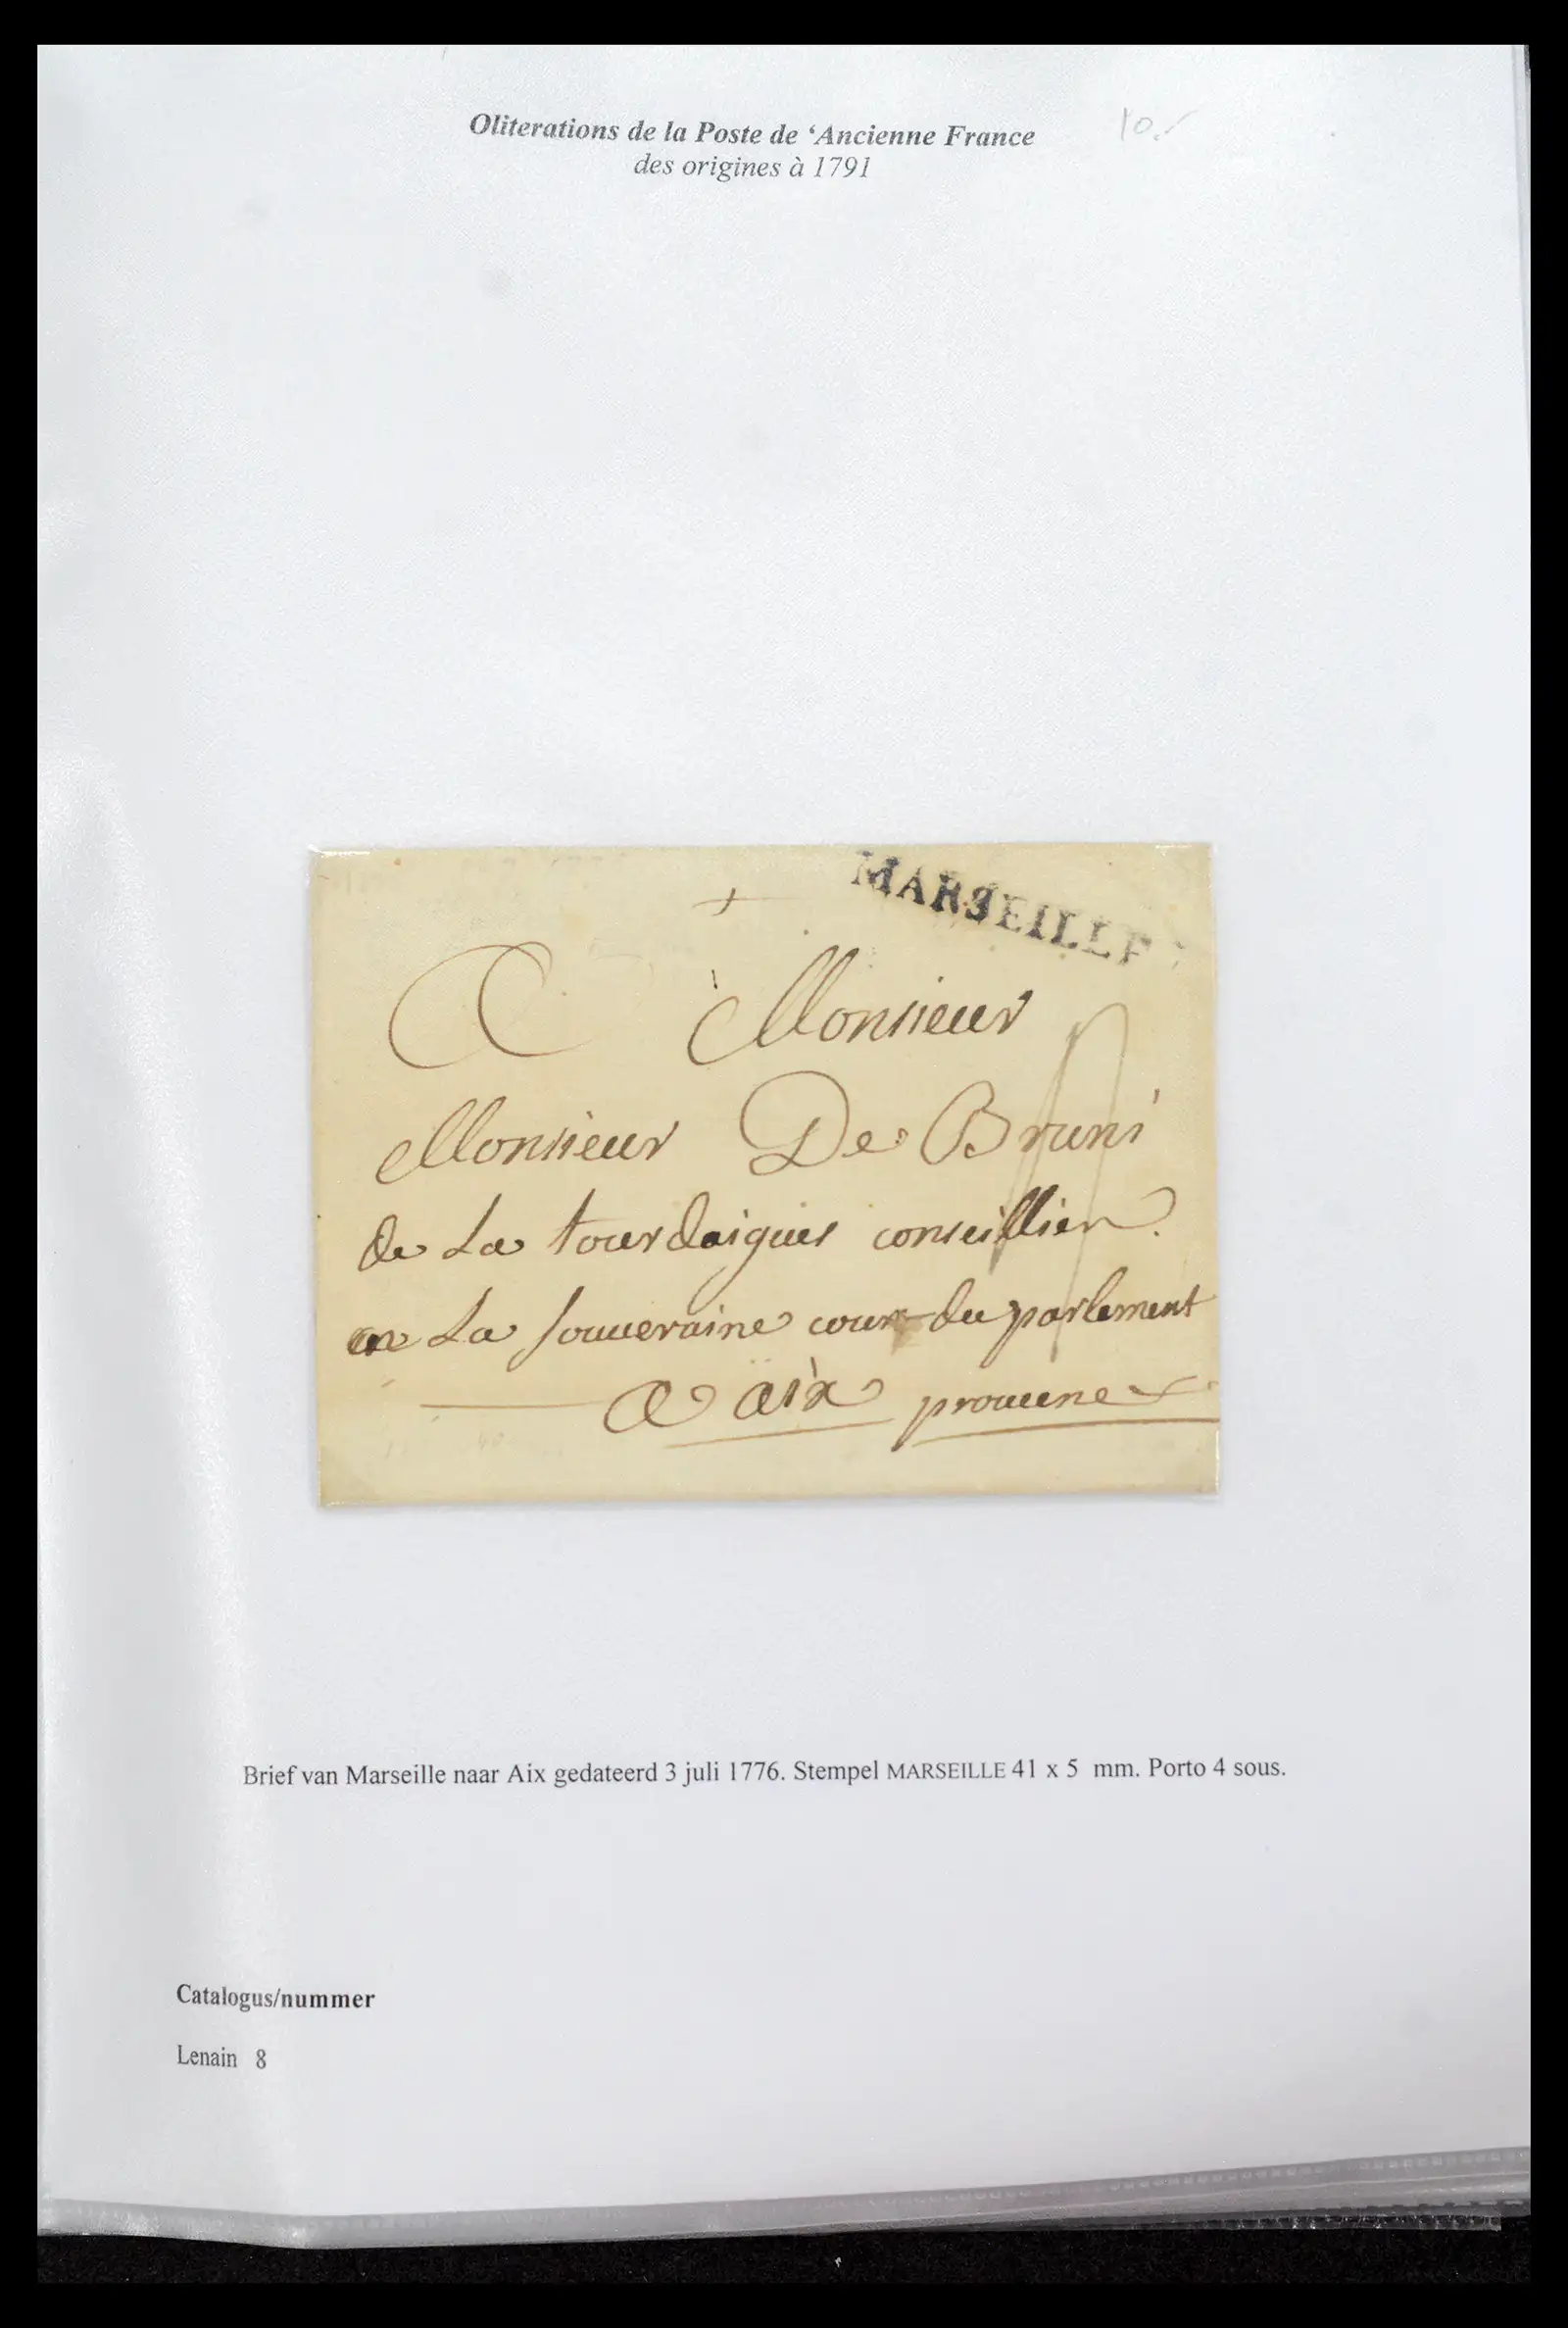 Oliterations de la Poste de ‘Ancienne France
des origines à 1791
10.-
MARSEILLE
A Monsieur
Monsieur De Bruni
de La tourdaigues conseillier
en La souueraine cour du parlement
A aix prouence
Brief van Marseille naar Aix gedateerd 3 juli 1776. Stempel MARSEILLE 41 x 5 mm. Porto 4 sous.
Catalogus/nummer
Lenain 8